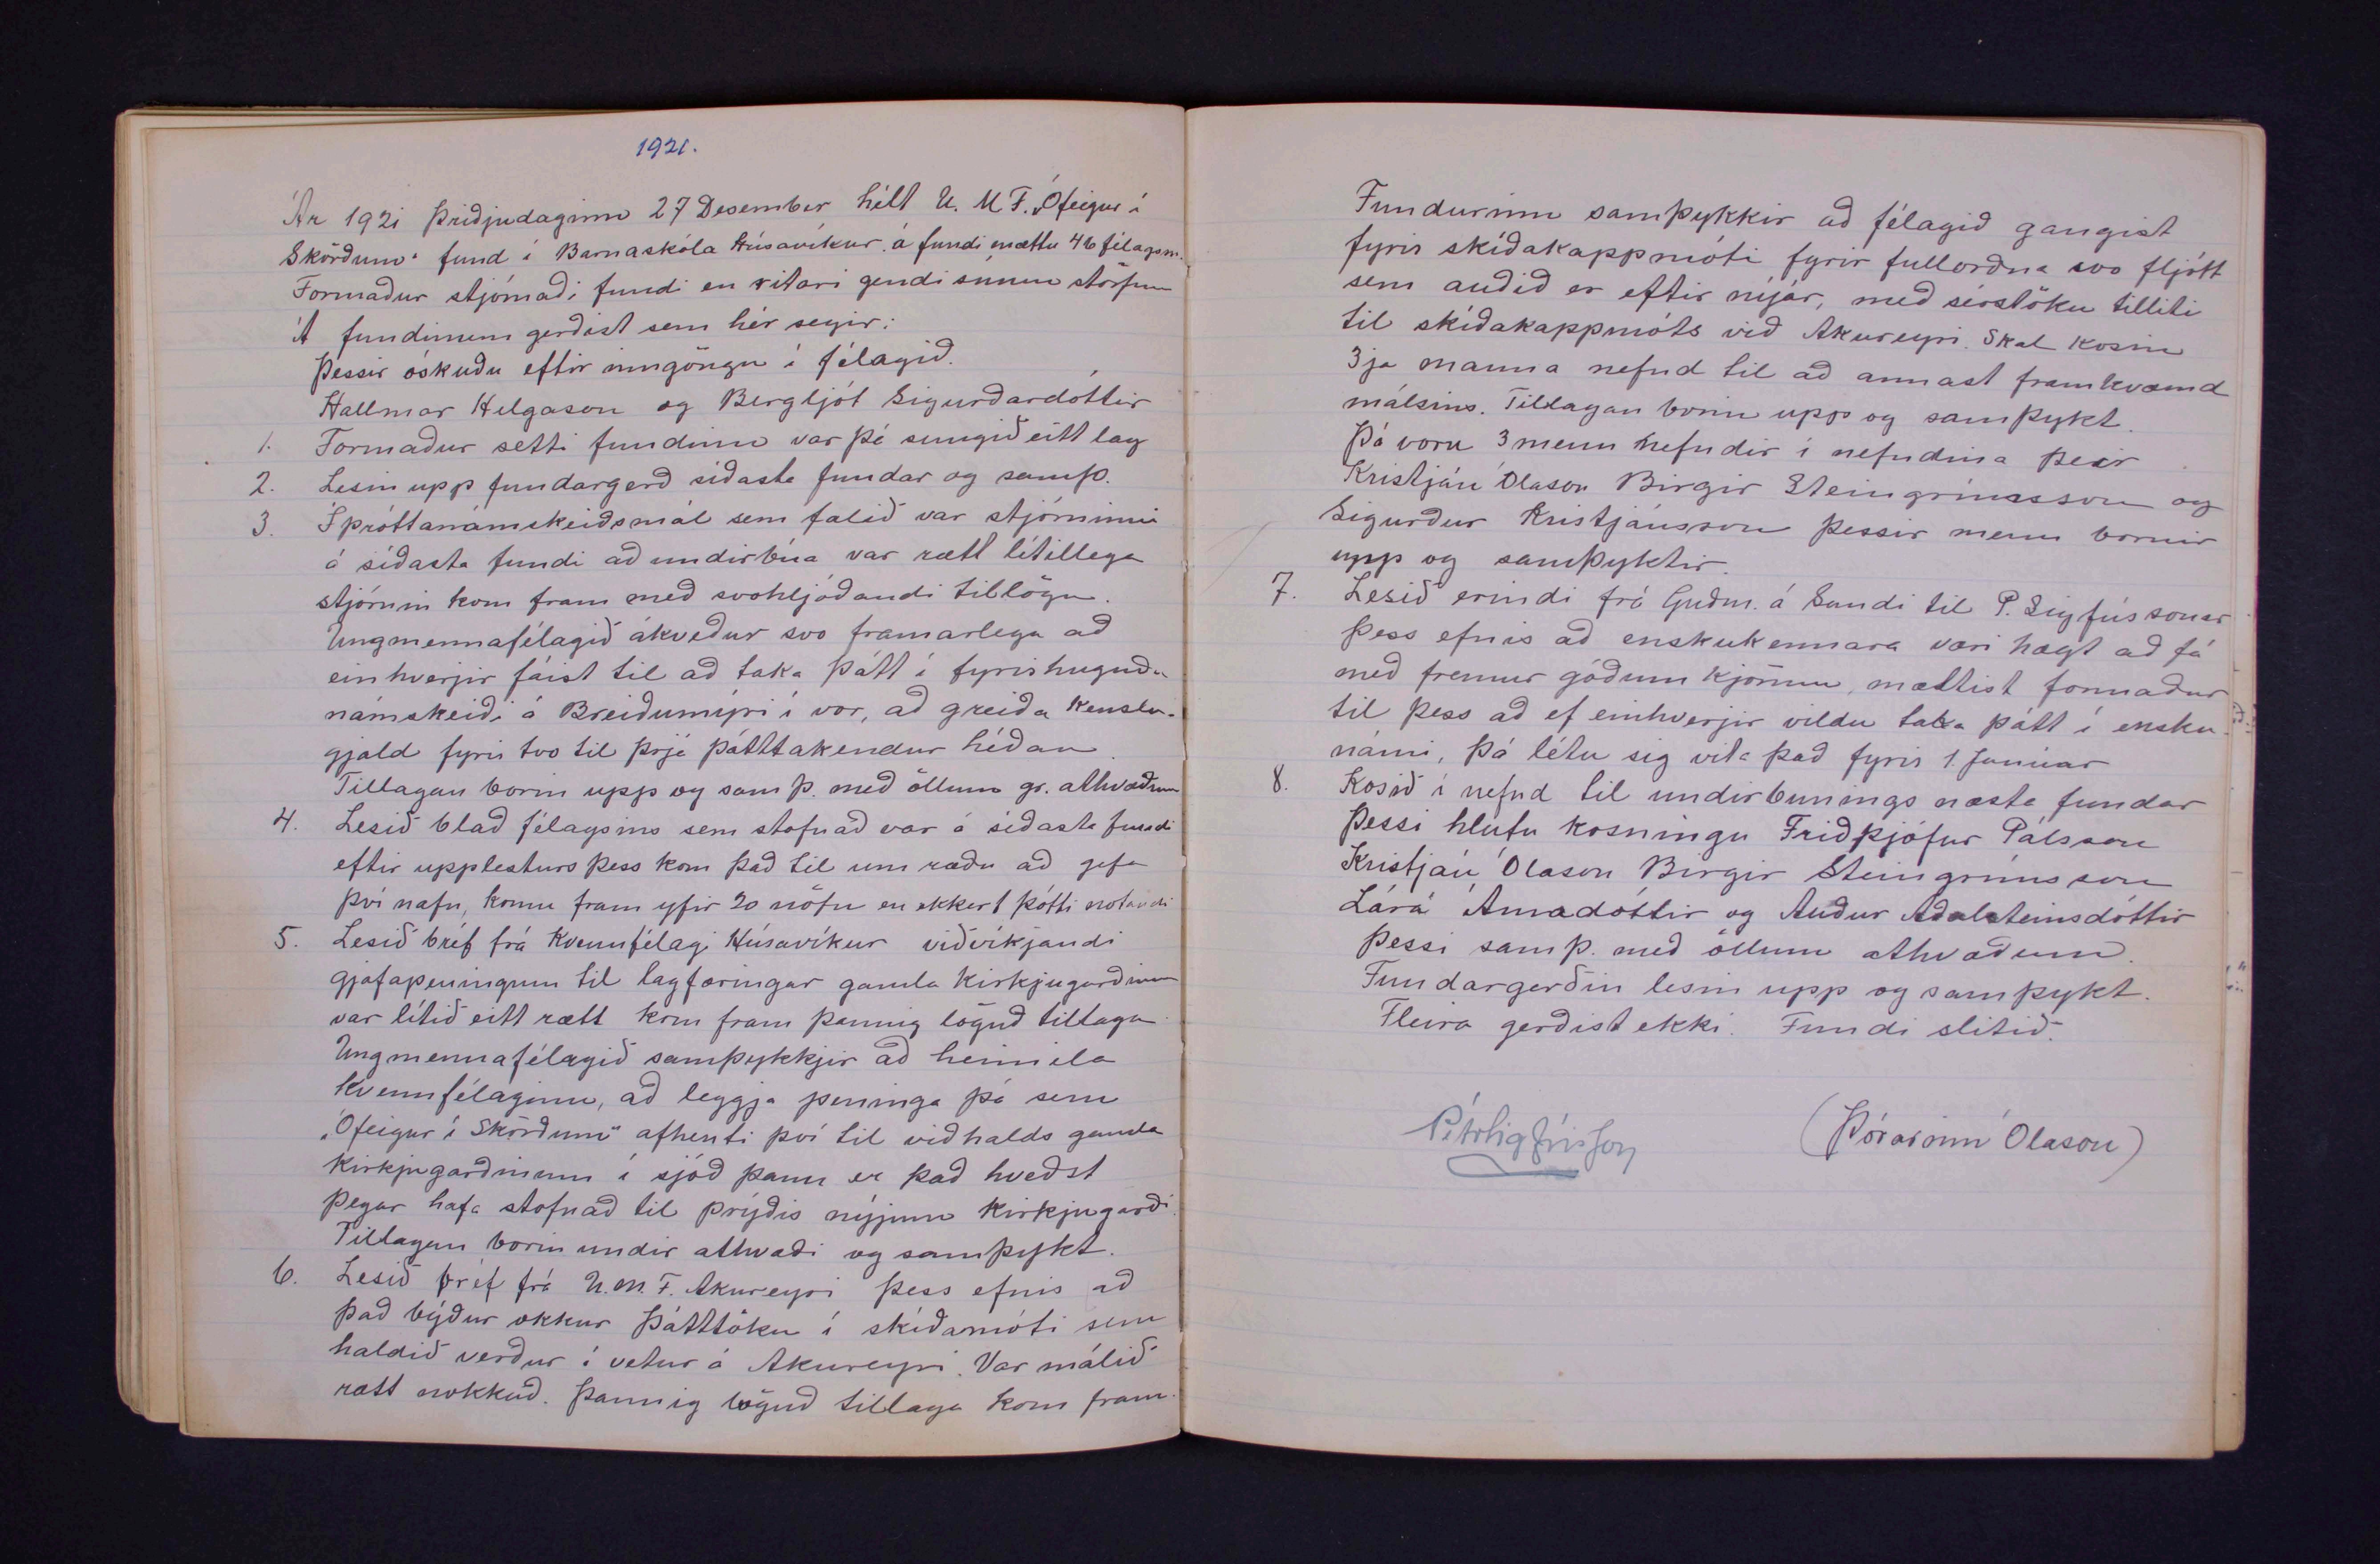 1921.
Ár 1921 Þriðjudaginn 27 Desember hélt U. M. F. „Ófeigur í
Skörðum“ fund í Barnaskóla Húsavíkur. á fundi mættu 46 félagsm.
Formaður stjórnaði fundi en ritari gendi sínum störfum
Á fundinum gerðist sem hér segir:
Þessir óskuðu eftir inngöngu í félagið.
Hallmar Helgason og Bergljót Sigurðardóttir
1. Formaður setti fundinn var þá sungið eitt lag
2. Lesin upp fundargerð síðasta fundar og samþ.
3. Íþróttanámskeiðsmál sem falið var stjórninni
á síðasta fundi að undirbúa var rætt lítillega
stjórnin kom fram með svohljóðandi tillögu.
Ungmennafélagið ákveður svo framarlega að
einhverjir fáist til að taka þátt í fyrishuguðu
námskeiði á Breiðumýri í vor, að greiða kenslu-
gjald fyrir tvo til þrjá þátttakendur héðan
Tillagan borin upp og samþ. með öllum gr. athvæðum
4. Lesið blað félagsins sem stofnað var á síðasta fundi
eftir upplesturs þess kom það til umræðu að gefa
því nafn, komu fram yfir 20 nöfn en ekkert þótti notandi
5. Lesið bréf frá Kvennfélagi Húsavíkur viðvíkjandi
gjafapeningum til lagfæringar gamla kirkjugarðinum
var lítið eitt rætt kom fram þannig löguð tillaga
Ungmennafélagið samþykkjir að heimila
Kvennfélaginu, að leggja peninga þá sem
„Ófeigur í Skörðum“ afhenti því til viðhalds gamla
Kirkjugarðinum í sjóð þann er það hveðst
þegar hafa stofnað til prýðis nýjum kirkjugarði.
Tillagan borin undir athvæði og samþykt.
6. Lesið bréf frá U. M. F. Akureyri þess efnis að
það býður okkur þátttöku í skíðamóti sem
haldið verður í vetur á Akureyri. Var málið
rætt nokkuð. Þannig löguð tillaga kom fram.
Fundurinn samþykkir að félagið gangist
fyrir skíðakappmóti fyrir fullorðna svo fljótt
sem auðið er eftir nýár, með sérstöku tilliti
til skíðakappmóts við Akureyri. Skal kosin
3ja manna nefnd til að annast framkvæmd
málsins. Tillagan borin upp og samþykt.
Þá voru 3 menn nefndir í nefndina Þeir
Kristján Ólason Birgir Steingrímsson og
Sigurður Kristjánsson þessir menn bornir
upp og samþyktir.
7. Lesið erindi frá Guðm. á Sandi til P. Sigfússonar
þess efnis að enskukennara væri hægt að fá
með fremur góðum kjörum, mæltist formaður
til þess að ef einhverjir vildu taka þátt í ensku
námi, þá létu sig vita það fyrir 1. Janúar
8. Kosið í nefnd til undirbunings næsta fundar
Þessi hlutu kosningu Friðþjófur Pálsson
Kristján Ólason Birgir Steingrímsson
Lára Árnadóttir og Auður Aðalsteinsdóttir
Þessi samþ. með öllum athvæðum.
Fundargerðin lesin upp og samþykt.
Fleira gerðist ekki. Fundi slitið.
Pétr Sigfússon (Þórarinn Ólason)